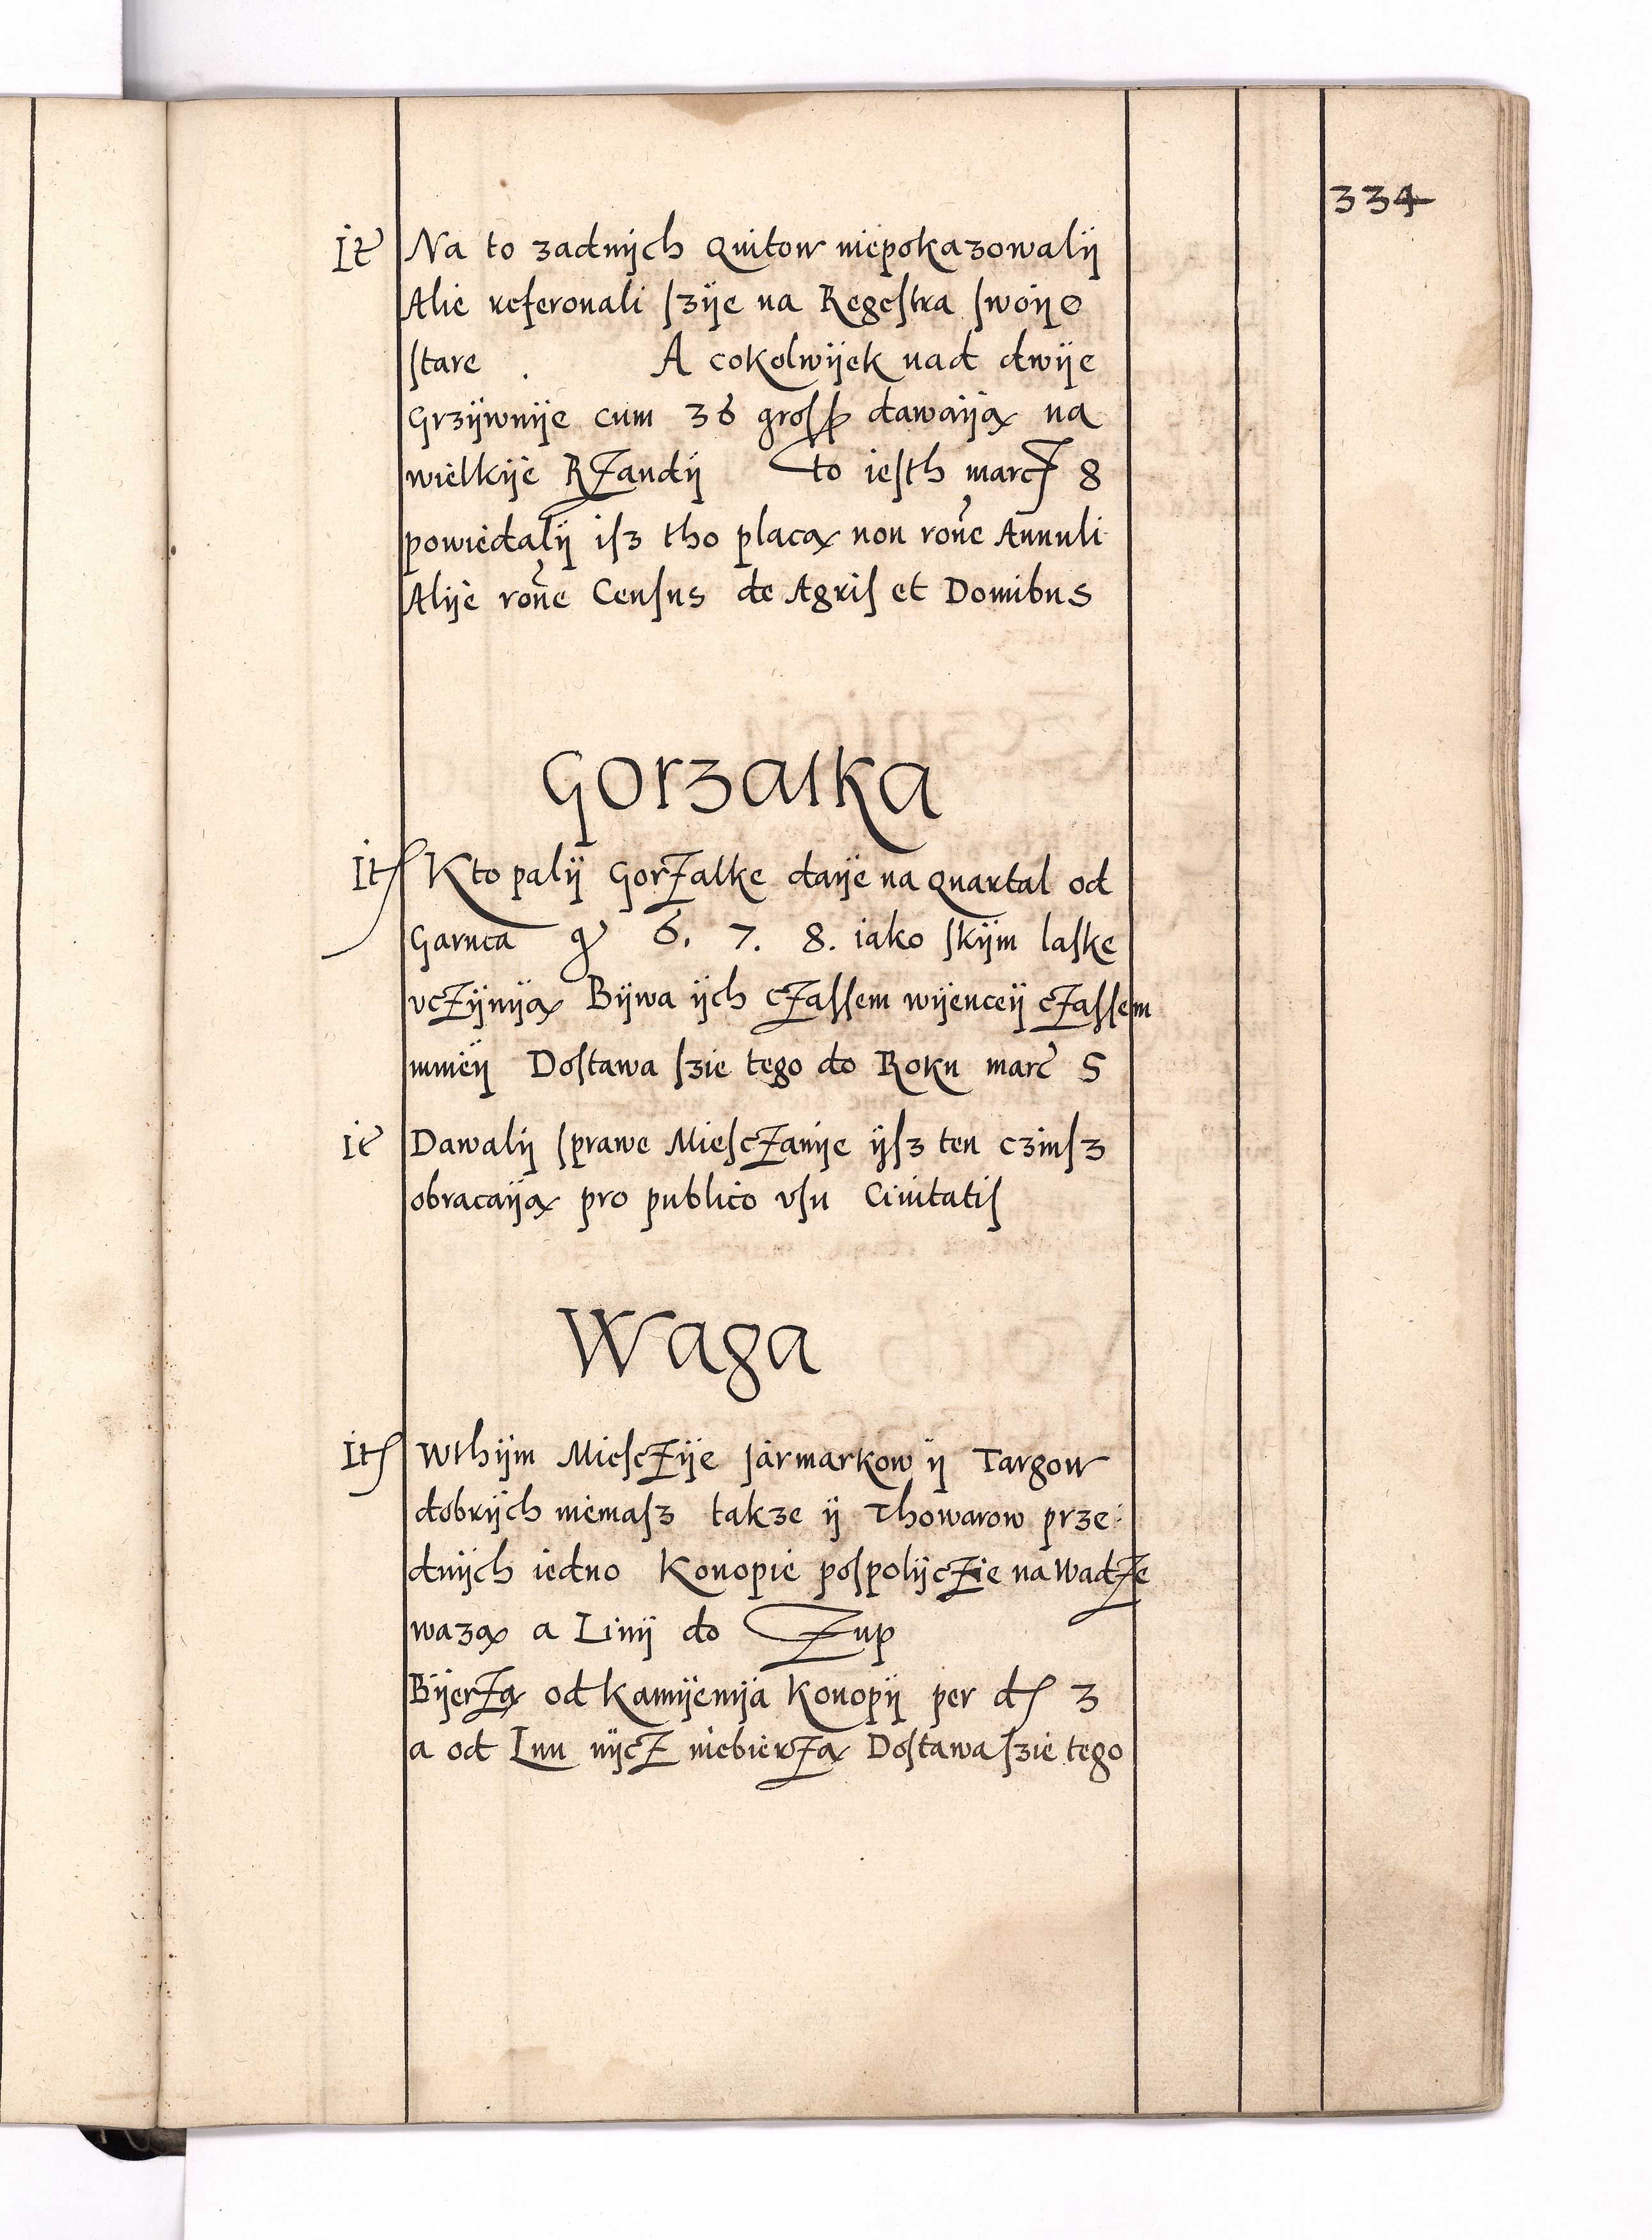 334
It Na to zadnÿch Quitow niepokazowalÿ
Alie referouali szÿe na Regestra swoÿe
stare . A cokolwÿek nad dwÿe
Grzÿwnÿe cum 36 gross dawaÿą na
wielkÿe RZandÿ To iesth marcZ 8
powiedalÿ isz tho placą non rone Annuli
Alÿe rone Census de Agris et Domibus
Gorzalka
It Kto palÿ GorZalke daÿe na Quartal od
Garnca gr 6. 7. 8. iako skÿm laske
vcZÿnÿą Bÿwa ÿch cZassem wÿenceÿ cZassem
mnieÿ Dostawa szie tego do Roku marc 5
It Dawalÿ sprawe MiescZanÿe ÿsz ten czinsz
obracaÿą pro publico vsu Ciuitatis
Waga
It Wthÿm MiescZÿe Jarmarkow ÿ Targow
dobrÿch niemasz takze ÿ Thowarow prze:
dnÿch iedno Konopie pospolÿcZie na WadZe
wazą a Linÿ do Zup
BÿerZą od kamÿenÿa Konopÿ per d 3
a od Lnu nÿcZ niebierZą Dostawa szie tego